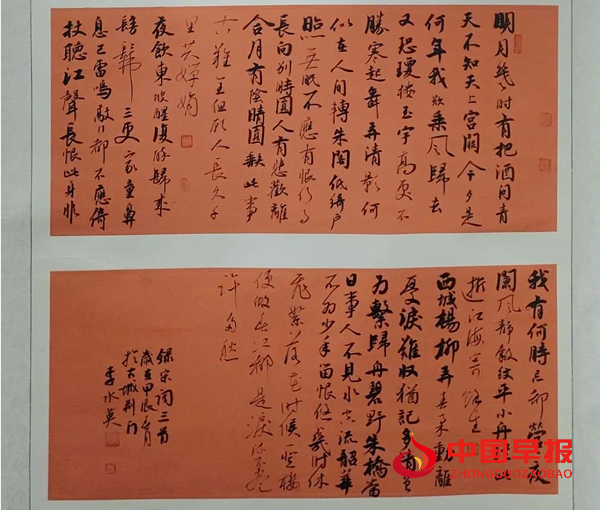 明月幾时有把酒问青
天不知天上宫阙今夕是
何年我欲乘风歸去
又恐瓊楼玉宇高處不
勝寒起舞弄清影何
似在人间轉朱阁低绮户
照无眠不應有恨何事
長向别時圆人有悲歡離
合月有陰晴圆缺此事
古難全但願人長久千
里共嬋娟
夜飲東坡醒復醉歸来
髣髴三更家童鼻
息已雷鳴敲门都不應倚
杖聽江聲長恨此身非
我有何時忘却營營夜
闌風静縠纹平小舟從此
逝江海寄餘生
西城楊柳弄春柔動離
憂淚難收猶記多情曾
为繫歸舟碧野朱橋當
日事人不見水空流韶華
不为少年留恨悠悠幾时休
飛絮落花时候一登樓
便做春江都是淚流不盡
許多愁
錄宋詞三首
歲在甲辰月
於古城荆门
李水英
中国早报
ZHONGGUOZAOBAO